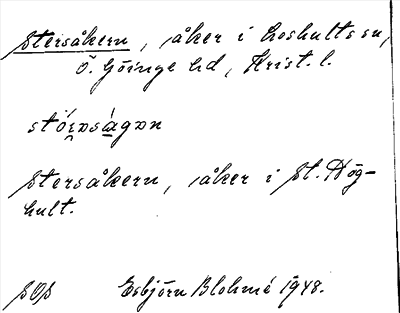 Stersåkern, åker i Loshults sn,
Ö. Göinge hd, Krist. l.
Stersåkern, åker i St. Hög-
hult.
SOS Esbjörn Blohmé 1948.